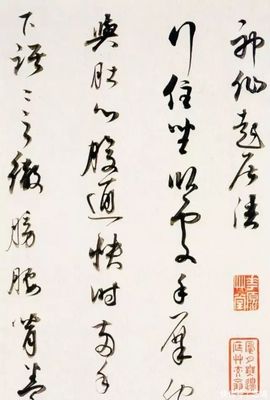 神仙起居法
行住坐卧處手摩脅
與肚心腹通快時兩手
下踞〻之徹膀腰背拳